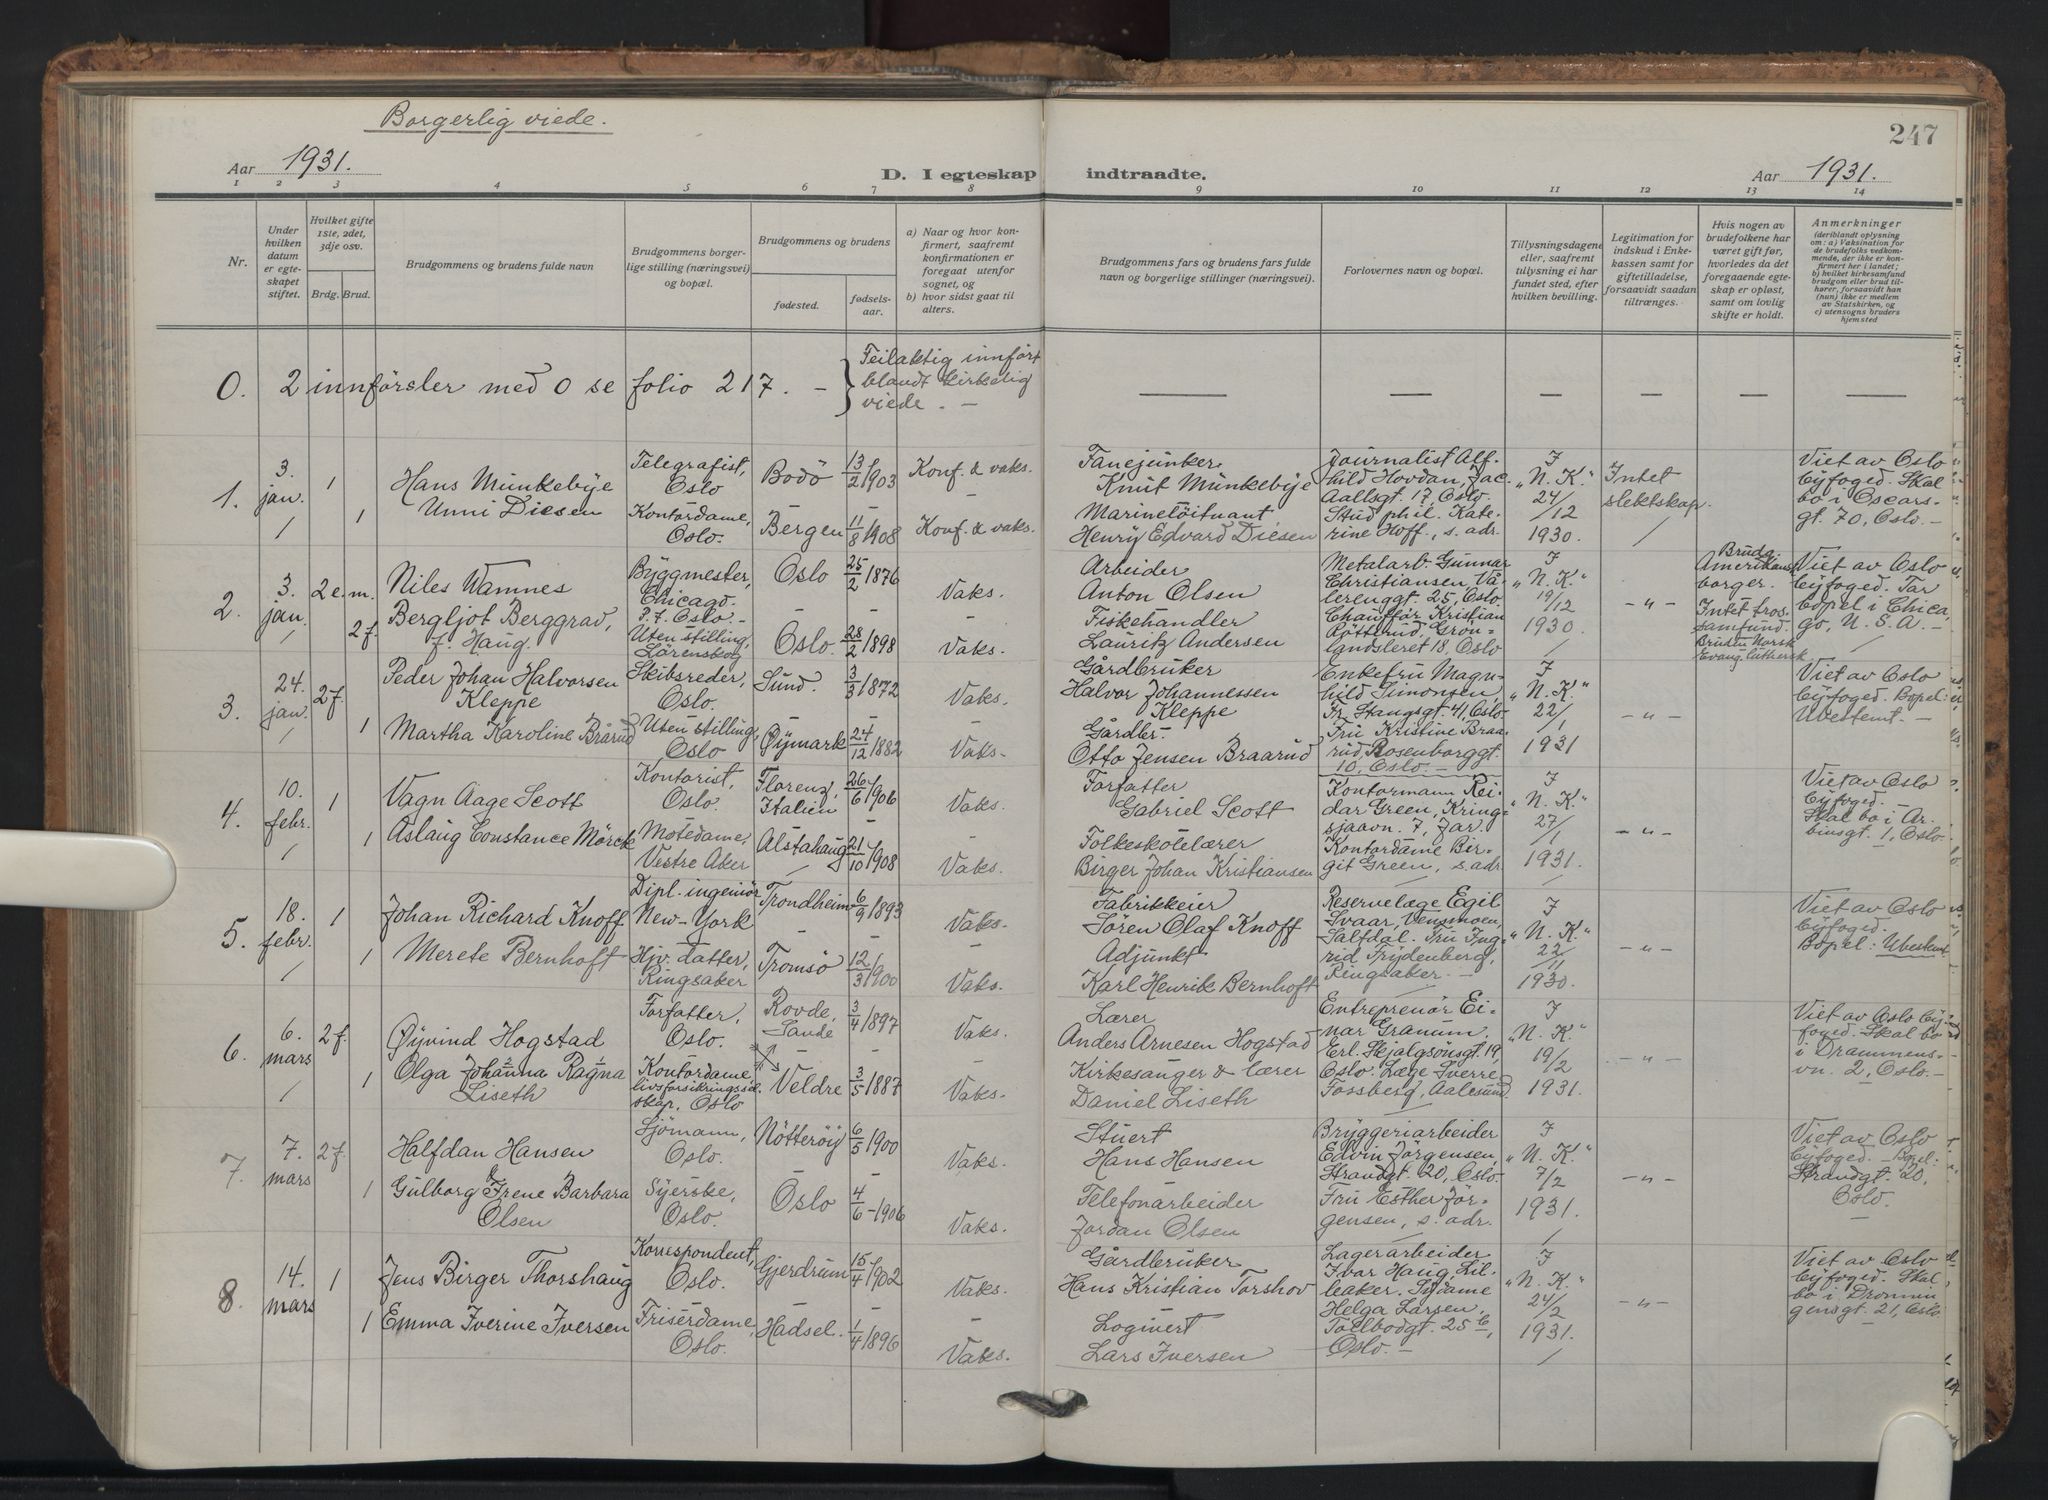 Borgerlig viede.
247
Aar 1931.
D. I egteskap indtraadte.
Aar 1931.
1 2 3 4 5 6 7 8 9 10 11 12 13 14
Nr.
Under
hvilken
datum
er egte-
skapet
stiftet.
Hvilket gifte
1ste, 2det,
3dje osv.
Brdg. Brud.
Brudgommens og brudens fulde navn
Brudgommens borger-
lige stilling (næringsvei)
og bopæl.
Brudgommens og brudens
fødested.
fødsels-
aar.
a) Naar og hvor kon-
firmert, saafremt
konfirmationen er
foregaat utenfor
sognet, og
b) hvor sidst gaat til
alters.
Brudgommens fars og brudens fars fulde
navn og borgerlige stillinger (næringsvei).
Forlovernes navn og bopæl.
Tillysningsdagene
eller, saafremt
tillysning ei har
fundet sted, efter
hvilken bevilling.
Legitimation for
indskud i Enke-
kassen samt for
giftetilladelse,
forsaavidt saadan
tiltrænges.
Hvis nogen av
brudefolkene har
været gift før,
hvorledes da det
foregaaende egte-
skap er opløst,
samt om lovlig
skifte er holdt.
Anmerkninger
(deriblandt oplysning
om: a) Vaksination for
de brudefolks vedkom-
mende, der ikke er kon-
firmert her i landet;
b) hvilket kirkesamfund
brudgom eller brud til-
hører, forsaavidt han
(hun) ikke er medlem
av Statskirken, og
c) utensogns bruders
hjemsted
0. 2 innførsler med 0 se folio 217. –
Feilaktig innført
blandt kirkelig
viede. –
1.
3.
jan.
1
Hans Munkebye
Telegrafist,
Oslo
Bodö
13/2 1903
Konf. & vaks.
1
Unni Diesen
Kontordame,
Oslo.
Bergen
11/8 1908
Konf. & vaks.
Fanejunker
Knut Munkebye
Marinelöitnant
Henry Edvard Diesen
Journalist Alf-
hild Hovdan, Jac.
Aallsgt. 17, Oslo.
Stud. phil. Kate-
rine Hoff, s. adr.
I
„N. K.“
24/12
1930.
Intet
slektskap.
Viet av Oslo
byfoged. Skal
bo i Oscars-
gt. 70, Oslo. –
2.
3.
jan.
2 e. m.
Niles Wamnes
Byggmester,
Chicago.
P. t. Oslo. –
Oslo
25/2 1876
Vaks.
2 f.
Bergljot Berggrad,
f. Haug.
Uten stilling,
Lörenskog
Oslo.
28/2 1898
Vaks.
Arbeider
Anton Olsen
Fiskehandler
Lauritz Andersen
Metalarb. Gunnar
Christiansen, Vå-
lerenggt. 25, Oslo.
Chauffør Kristian
Rötterud, Grön-
landsleret 18, Oslo
I
„N. K.“
19/12
1930.
– „ –
Brudg.
Amerikansk
borger.
Intet tros-
samfund.
Bruden Norsk
Evang. luthersk
Viet av Oslo
byfoged. Tar
bopel i Chica-
go, U. S. A. –
3.
24.
jan.
2 f.
Peder Johan Halvorsen
Kleppe
Skibsreder,
Oslo.
Sund.
3/3 1872
Vaks.
1
Martha Karoline Brårud
Uten stilling,
Oslo
Øymark
24/12 1882
Vaks.
Gårdbruker
Halvor Johannessen
Kleppe
Gårdbr.
Otto Jensen Braarud
Enkefru Magn-
hild Simonsen,
Fr. Stangsgt. 41, Oslo.
Fru Kristine Braa-
rud, Rosenborggt.
10, Oslo. –
I
„N. K.“
22/1
1931
– „ –
Viet av Oslo
byfoged. Bopel:
Ubestemt. –
4.
10.
febr.
1
Vagn Aage Scott
Kontorist,
Oslo.
Florenz,
Italien
26/6 1906
Vaks.
1
Aslaug Constance Mörck
Motedame,
Vestre Aker
Alstahaug
21/10 1908
Vaks.
Forfatter
Gabriel Scott
Folkeskolelærer
Birger Johan Kristiansen
Kontormann Rei-
dar Green, Kring-
sjaavn. 7, Jar.
Kontordame Bir-
git Green, s. adr.
I
„N. K.“
27/1
1931.
– „ –
Viet av Oslo
byfoged.
Skal bo i Ar-
binsgt. 1, Oslo.
5.
18.
febr.
1
Johan Richard Knoff
Dipl. ingeniör
New-York
Trondheim
6/9 1893
Vaks.
1
Merete Bernhoft
Hjv. datter,
Ringsaker
Tromsö
12/3 1900
Vaks.
Fabrikkeier
Sören Olaf Knoff
Adjunkt
Karl Henrik Bernhoft
Reservelæge Egil
Svaar, Vensmoen,
Saltdal. Fru Ing-
rid Frydenberg,
Ringsaker. –
I
„N. K.“
22/11
1930.
– „ –
Viet av Oslo
byfoged.
Bopel: Ubestemt
6.
6.
mars
2 f.
Øyvind Hogstad
Forfatter,
Oslo.
Rovde,
Sande
3/4 1897
Vaks.
1
Olga Johanna Ragna
Liseth
Kontordame,
livsforsikringssel-
skap, Oslo
Veldre
3/5 1887
Vaks.
Lærer
Anders Arnesen Hogstad
Kirkesanger & lærer
Daniel Liseth
Entreprenör Ei-
nar Granum,
Erl. Skjalgsönsgt. 19,
Oslo. Læge Sverre
Fossberg, Aalesund.
I
„N. K.“
19/2
1931.
– „ –
Viet av Oslo by-
foged. Skal bo
i Drammens-
vn. 2, Oslo. –
7.
7.
mars
2 f.
Halfdan Hansen
Sjömann,
Oslo.
Nötteröy
6/5 1900
Vaks.
1
Gulborg Irene Barbara
Olsen
Syerske,
Oslo.
Oslo
4/6 – 1906
Vaks.
Stuert
Hans Hansen
Telefonarbeider
Jordan Olsen
Bryggeriarbeider
Edvin Jörgensen,
Strandgt. 20, Oslo.
Fru Esther Jör-
gensen, s. adr.
I
„N. K.“
7/2
1931.
– „ –
Viet av Oslo
byfoged. – Bopel:
Strandgt. 20,
Oslo.
8.
14.
mars
1
Jens Birger Thorshaug
Korrespondent,
Oslo.
Gjerdrum
15/4 1902
Vaks.
1
Emma Iverine Iversen
Friserdame,
Oslo.
Hadsel.
1/4 1896
Vaks.
Gårdbruker
Hans Kristian Torshov
Loginert
Lars Iversen
Lagerarbeider
Ivar Haug, Lil-
leaker. Sydame
Helga Larsen,
Tollbodgt. 25 b,
Oslo. –
I
„N. K.“
24/2
1931.
– „ –
Viet av Oslo
byfoged. Skal
bo i Dronnin-
gensgt. 21, Oslo